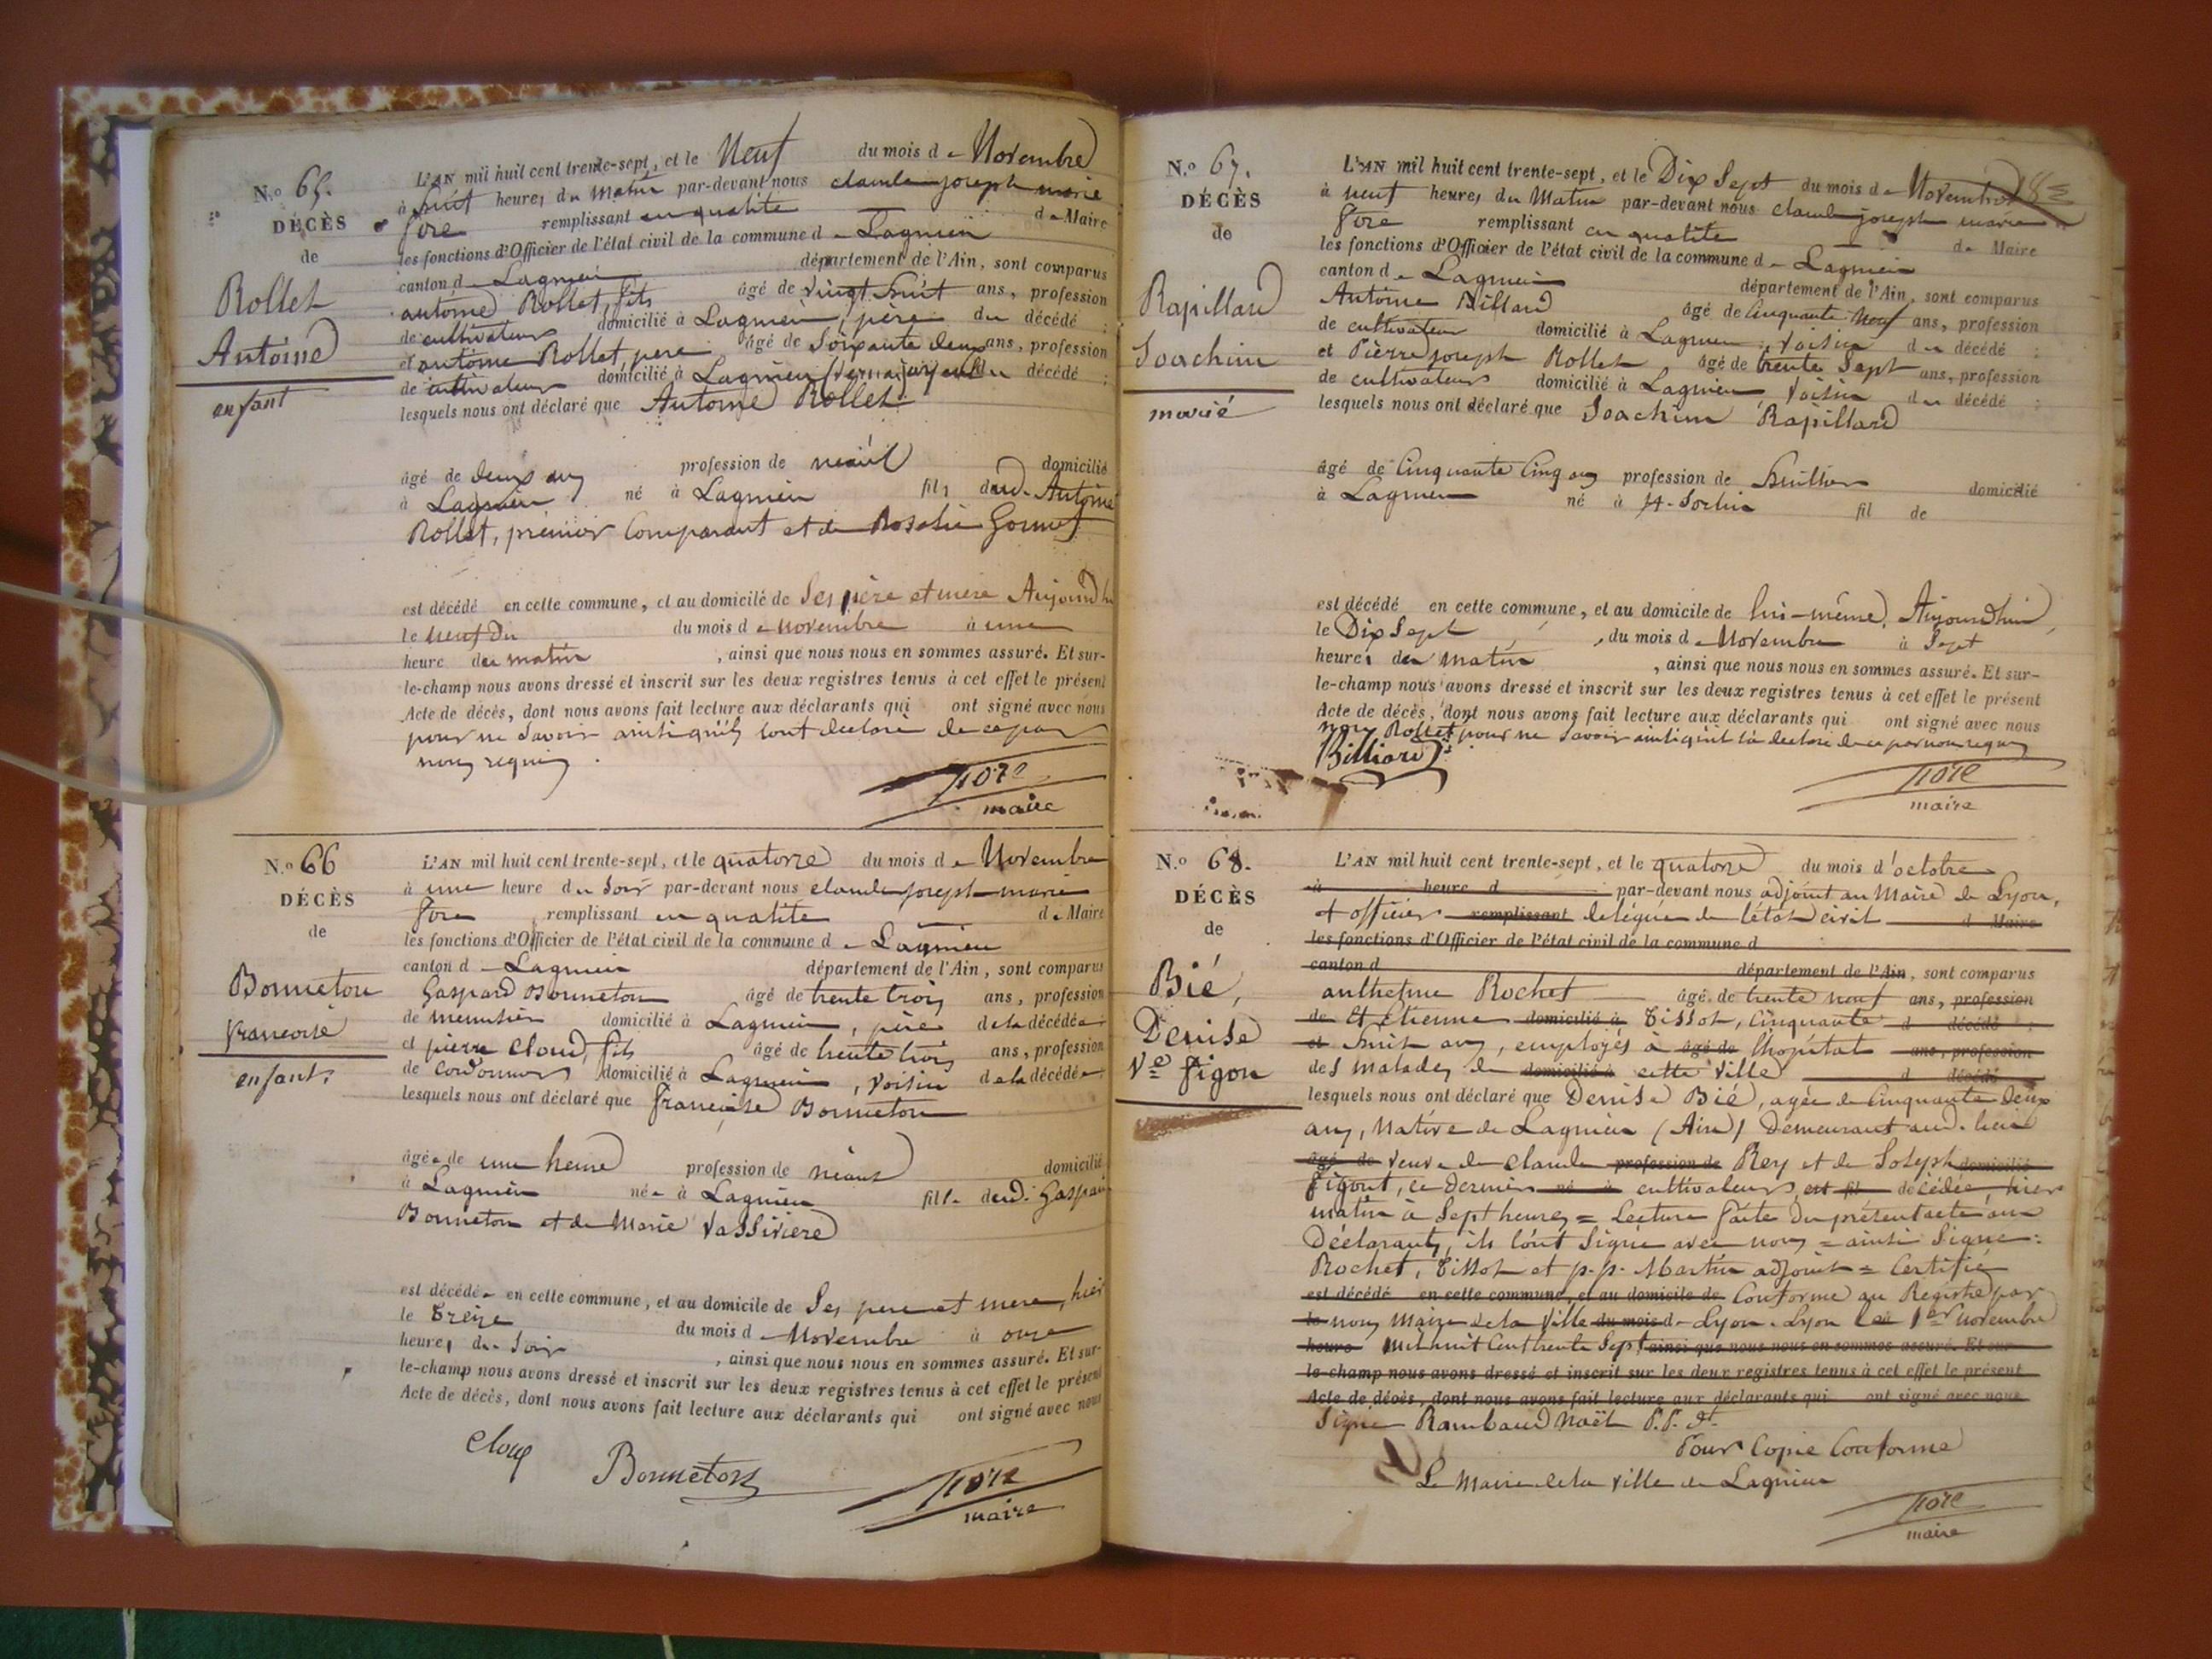 N.º 65.
DÉCÈS
de
Rollet
Antoine
enfant
L'AN mil huit cent trente-sept, et le Neuf du mois de Novembre
à huit heures du Matin par-devant nous claude joseph marie
fore remplissant en qualité de Maire
les fonctions d'Officier de l'état civil de la commune de Lagnieu
canton de Lagnieu département de l'Ain, sont comparus
antoine Rollet, fils âgé de vingt huit ans, profession
de cultivateur domicilié à Lagnieu, père du décédé ;
et antoine Rollet pere âgé de Soixante deux ans, profession
de cultivateur domicilié à Lagnieu du décédé ;
lesquels nous ont déclaré que Antoine Rollet
âgé de deux ans profession de néant domicilié
à Lagnieu né à Lagnieu fils dud. Antoine
Rollet, premier Comparant et de Rosalie Gonnet
est décédé en cette commune, et au domicile de Ses père et mere Aujourd'hui
le neuf du du mois de novembre à une
heure du matin , ainsi que nous nous en sommes assuré. Et sur-
le-champ nous avons dressé et inscrit sur les deux registres tenus à cet effet le présent
Acte de décès, dont nous avons fait lecture aux déclarants qui ont signé avec nous
pour ne Savoir ainsi qu'ils l'ont declaré de ce par
nous requis
fore
maire
N.º 66
DÉCÈS
de
Bonneton
françoise
enfant.
L'AN mil huit cent trente-sept, et le quatorze du mois de Novembre
à une heure du Soir par-devant nous claude joseph marie
fore remplissant en qualité de Maire
les fonctions d'Officier de l'état civil de la commune de Lagnieu
canton de Lagnieu département de l'Ain, sont comparus
Gaspard Bonneton âgé de trente trois ans, profession
de menuisier domicilié à Lagnieu, père de la décédée ;
et pierre Cloud, fils âgé de trente trois ans, profession
de Cordonnier domicilié à Lagnieu, Voisin de la décédée ;
lesquels nous ont déclaré que françoise Bonneton
âgée de une heure profession de néant domicilié
à Lagnieu née à Lagnieu fille dud. Gaspard
Bonneton et de Marie Vassiviere
est décédée en cette commune, et au domicile de Ses pere et mere, hier
le treize du mois de Novembre à onze
heures du Soir , ainsi que nous nous en sommes assuré. Et sur-
le-champ nous avons dressé et inscrit sur les deux registres tenus à cet effet le présent
Acte de décès, dont nous avons fait lecture aux déclarants qui ont signé avec nous
Cloud Bonneton
fore
maire
N.º 67.
DÉCÈS
de
Rapillard
Joachim
marié
L'AN mil huit cent trente-sept, et le Dix Sept du mois de Novembre
à neuf heures du Matin par-devant nous claude joseph marie
fore remplissant en qualité de Maire
les fonctions d'Officier de l'état civil de la commune de Lagnieu
canton de Lagnieu département de l'Ain, sont comparus
Antoine Billard âgé de Cinquante Neuf ans, profession
de cultivateur domicilié à Lagnieu, Voisin du décédé ;
et Pierre joseph Rollet âgé de trente Sept ans, profession
de cultivateur domicilié à Lagnieu, Voisin du décédé ;
lesquels nous ont déclaré que Joachim Rapillard
âgé de Cinquante Cinq ans profession de huilier domicilié
à Lagnieu né à St. Sorlin fil de
est décédé en cette commune, et au domicile de lui-même, Aujourd'hui,
le Dix Sept du mois de Novembre à Sept
heures du matin , ainsi que nous nous en sommes assuré. Et sur-
le-champ nous avons dressé et inscrit sur les deux registres tenus à cet effet le présent
Acte de décès, dont nous avons fait lecture aux déclarants qui ont signé avec nous
non Rollet pour ne Savoir ainsi qu'il l'a declaré de ce par nous requis
Billiard
fore
maire
N.º 68.
DÉCÈS
de
Bié,
Denise
Ve figon
L'AN mil huit cent trente-sept, et le quatorze du mois d'octobre
à heure d par-devant nous adjoint au Maire de Lyon,
et officier remplissant delegué de l'état civil d Maire
les fonctions d'Officier de l'état civil de la commune d
canton d département de l'Ain, sont comparus
anthelme Rochet âgé de trente neuf ans, profession
de Et Etienne domicilié à Tissot, Cinquante d décédé ;
et huit ans, employés à âgé de l'hopital ans, profession
des malades de domicilié à cette Ville d décédé
lesquels nous ont déclaré que Denise Bié, agée de Cinquante Deux
ans, Native de Lagnieu (Ain) Demeurant aud. lieu
âgé de Veuve de Claude profession de Rey et de Joseph domicilié
figont, ce dernier né à cultivateur, est fil décédée, hier
matin à Sept heures = Lecture faite du present acte aux
Déclarants, ils l'ont Signé avec nous = ainsi Signé :
Rochet, Tissot et p.p. Martin adjoint = Certifié
est décédé en cette commune, et au domicile de Conforme au Registre par
le nous Maire de la Ville du mois d Lyon. Lyon le 1er Novembre
heure mil huit Cent trente Sept ainsi que nous nous en sommes assuré. Et sur-
le-champ nous avons dressé et inscrit sur les deux registres tenus à cet effet le présent
Acte de décès, dont nous avons fait lecture aux déclarants qui ont signé avec nous
Signé Rambaud Noël
Pour Copie Conforme
Le Maire de la Ville de Lagnieu
fore
maire